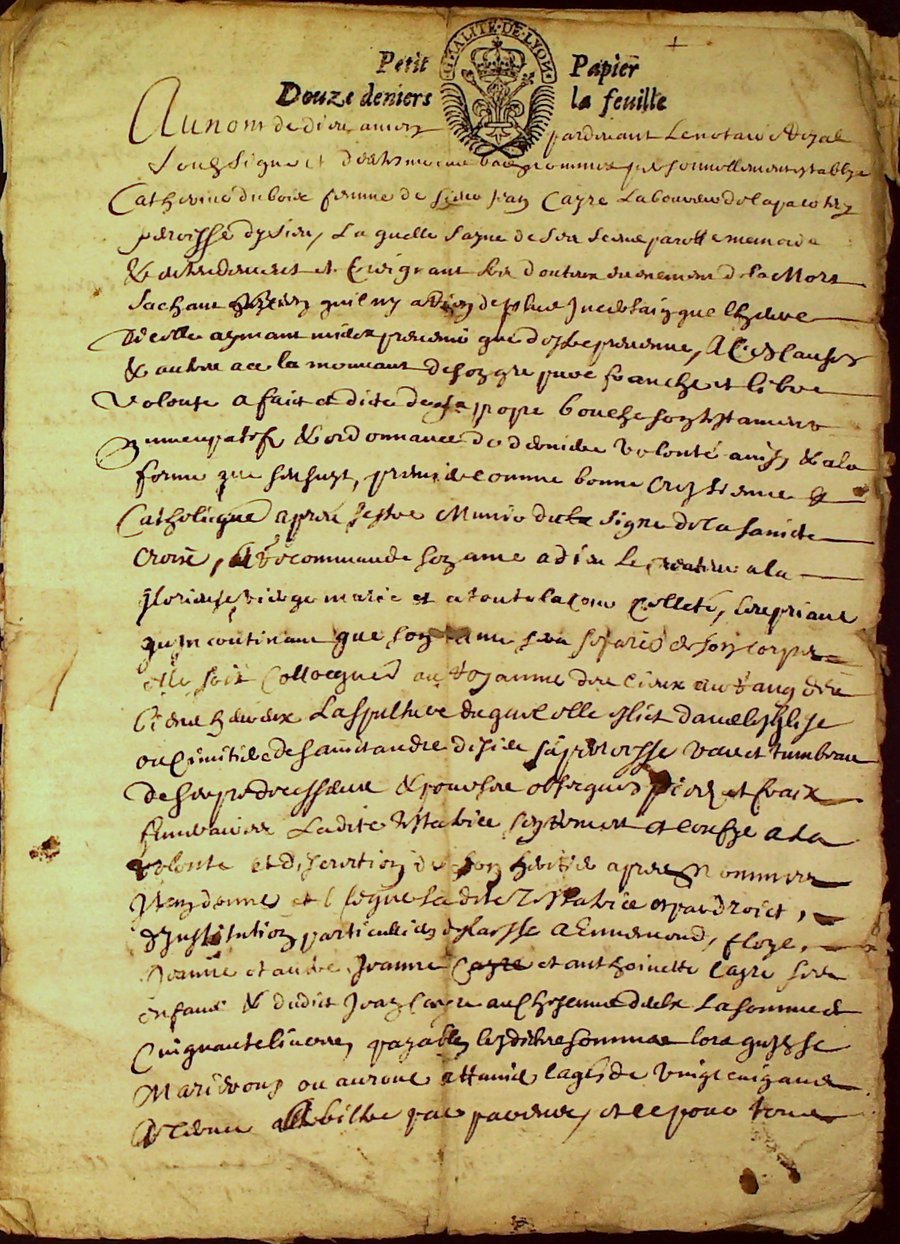 GENERALITE·DE·LYON
Petit Papier
Douze deniers la feuille
Au nom de dieu amen pardevant Le notaire Royal
Soubsigne et personnellement establye
Catherine dubois femme de sieur Jean Cayre Laboureur de
paroisse dysieu, La quelle sayne de ses sens parolle memoire
& entendement et Craignant les doubteux evenemens de la Mort
Sachant quil ny a Rien de plus Incertain que lheure
dicelle aymant mieux prevenir que destre prevenue, A Ces Causes
& autres a ce la mouvant de son gre pure franche et libre
Volonte a faict et dicte de sa propre bouche son testament
nuncupatif & ordonnance de derniere volonté ainsy & a la
forme que sensuyt, premier comme bonne Crestienne &
Catholique apres sestre Munie du signe de la saincte
Croix, Recommande son ame a dieu Le Createur a la
glorieuse vierge marie et a toute la Cour Celleste, les priant
quincontinant que son ame sera separée de son Corps
elle soit Collocquée au Royaume des Cieux au rang des
bien heureux La sepulture duquel elle eslict dans lesglise
ou Cimitiere de sainct andre disieu sa paroisse vas et tumbeau
de ses predecesseurs & pour ses obseques et fraix
funeraires Ladite testatrice sen remet et confye a la
volonte et discretion de son heritier apres Nommé
Item donne et legue Ladite Testatrice et par droict
dinstitution particuliere delaisse a Ennemond, Cloye,
Jeanne et autre Jeanne Cayre et anthoinette Cayre ses
enfans & dudit Jean Cayre a Chascune deulx La somme de
Cinquante livres, payables lesdittes sommes lors quils se
Marieront ou auront attaint lage de vingt cinq ans